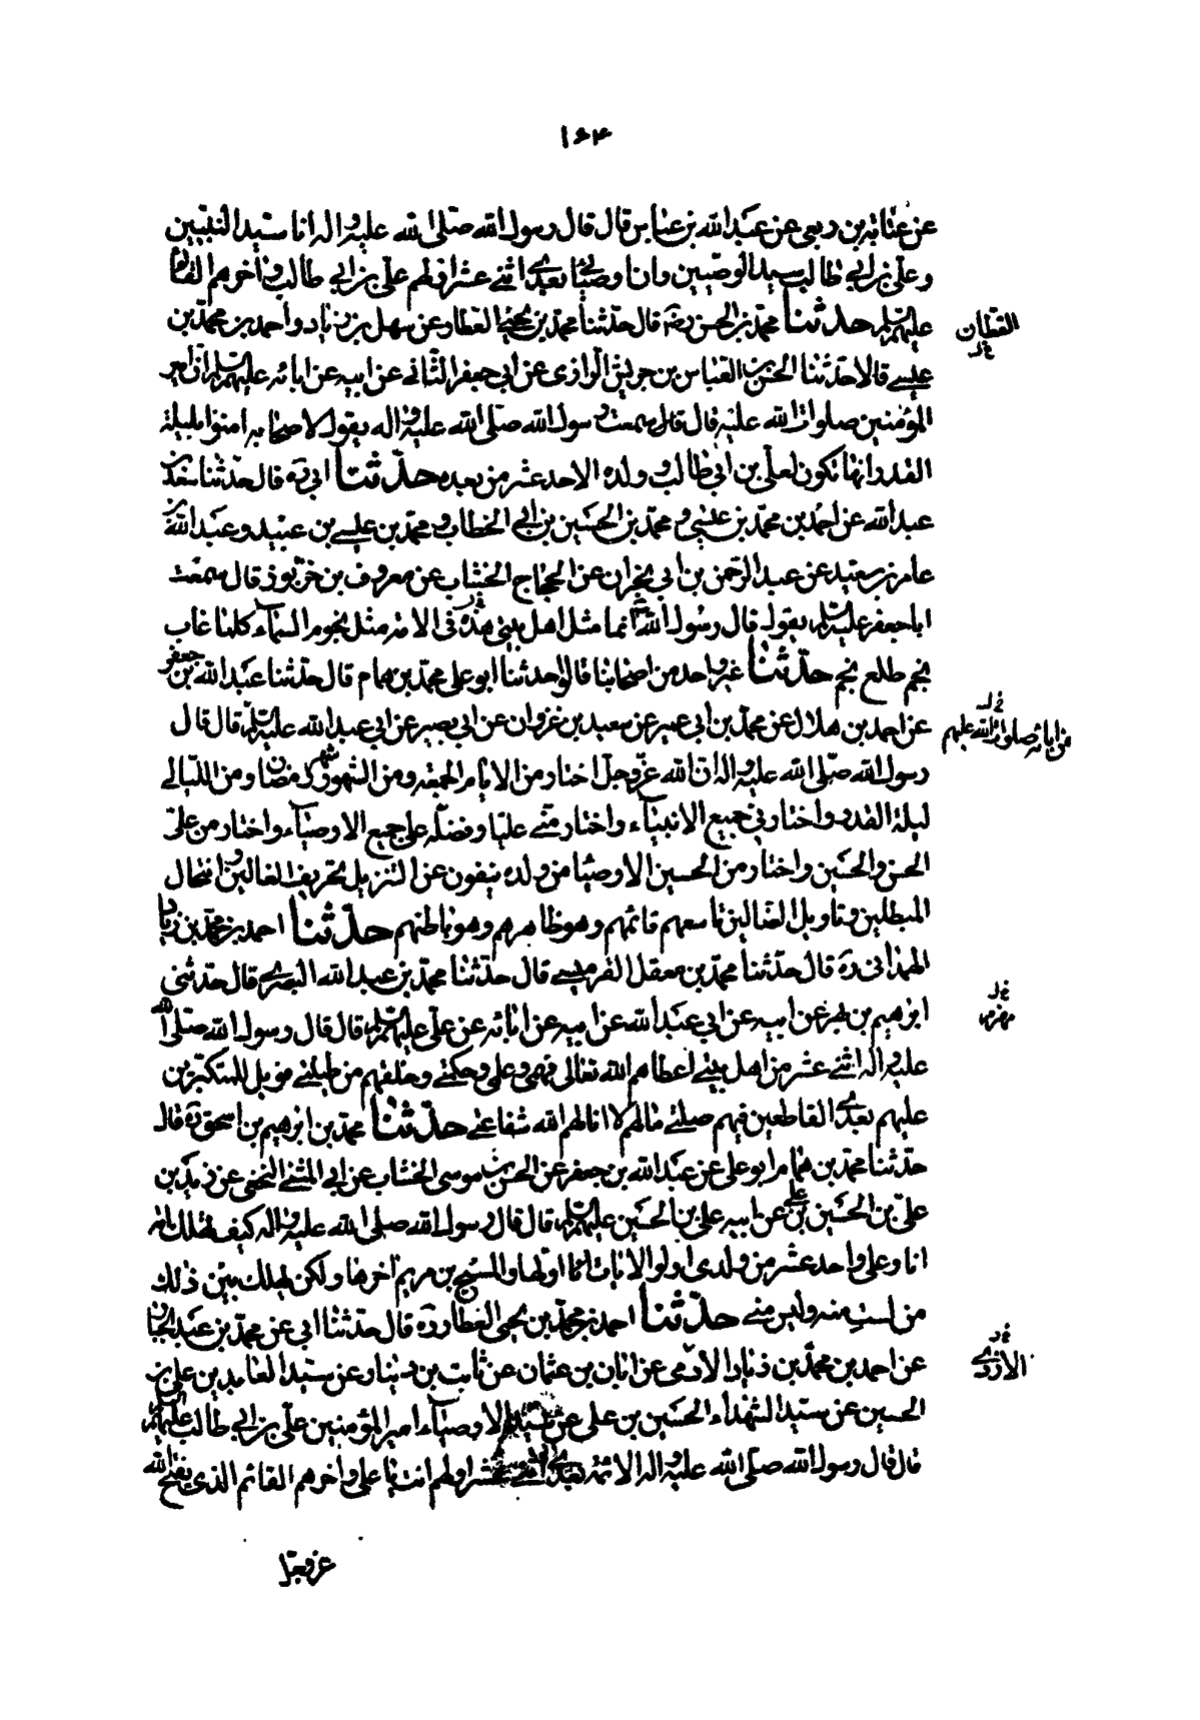 ١٦٤
عن عبّاية بن ربعي عن عبد الله بن عباس قال قال رسول الله صلى الله عليه واله انا سيد النبيين
وعلي بن ابي طالب سيد الوصيين وان اوصيائي بعدي اثنى عشر اولهم علي بن ابي طالب واخرهم القائم
عليهم السلم حدثنا محمد بن الحسن ره قال حدثنا محمد بن يحيى العطار عن سهل بن زياد واحمد بن محمد بن
القطان خ ل
عيسى قالا حدثنا الحسن بن العباس بن حريش الرازى عن ابي جعفر الثاني عن ابيه عن ابائه عليهم السلم ان امير
المؤمنين صلوات الله عليه قال قال سمعت رسول الله صلى الله عليه واله يقول لاصحابه امنوا بليلة
القدر انها تكون لعلي بن ابي طالب وولده الاحد عشر من بعده حدثنا ابي ره قال حدثنا سعد بن
عبد الله عن احمد بن محمد بن عيسى ومحمد بن الحسين بن ابي الخطاب ومحمد بن عيسى بن عبيد وعبد الله بن
عامر بن سعيد عن عبد الرحمن بن ابي نجران عن الحجاج الخشاب عن معروف بن خربوذ قال سمعت
ابا جعفر عليه السلم يقول قال رسول الله انما مثل اهل بيتي هذه في الامة مثل نجوم السماء كلما غاب
نجم طلع نجم حدثنا غير واحد من اصحابنا قالوا حدثنا ابو علي محمد بن همام قال حدثنا عبد الله بن جعفر
عن احمد بن هلال عن محمد بن ابي عمير عن سعيد بن غزوان عن ابي بصير عن ابي عبد الله عليه السلم قال قال
عن ابائه صلوات الله عليهم خ ل
رسول الله صلى الله عليه واله ان الله عز وجل اختار من الايام الجمعة ومن الشهور شهر رمضان ومن الليالي
ليلة القدر واختارني جميع الانبياء واختار مني عليا وفضله على جميع الاوصياء واختار من علي
الحسن والحسين واختار من الحسين الاوصيا من ولده ينفون عن التنزيل تحريف الغالين وانتحال
المبطلين وتاويل الضالين تاسعهم قائمهم وهو ظاهرهم وهو باطنهم حدثنا احمد بن محمد بن زياد
الهمداني ره قال حدثنا محمد بن معقل القرميسى قال حدثنا محمد بن عبد الله البصرى قال حدثني
ابرهيم بن مهزم عن ابيه عن ابي عبد الله عن ابيه عن ابائه عن علي عليهم السلم قال قال رسول الله صلى الله
مهزم خ ل
عليه واله اثنى عشر من اهل بيتي اعطاهم الله تعالى فهمي وعلمي وحكمتي وخلقهم من طينتي فويل للمتكبرين
عليهم بعدي القاطعين فيهم صلتي مالهم لا انالهم الله شفاعتي حدثنا محمد بن ابرهيم بن اسحق ره قال
حدثنا محمد بن همام ابو علي عن عبد الله بن جعفر عن الحسن بن موسى الخشاب عن ابي المثنى النخعي عن زيد بن
علي بن الحسين بن علي عن ابيه علي بن الحسين عليهم السلم قال قال رسول الله صلى الله عليه واله كيف تهلك امة
انا وعلي واحد عشر من ولدى اولوا الالباب انا اولها والمسيح بن مريم اخرها ولكن يهلك بين ذلك
من لست منه وليس مني حدثنا احمد بن محمد بن يحيى العطار ره قال حدثنا ابي عن محمد بن عبد الجبار
عن احمد بن محمد بن زياد الازدى عن ابان بن عثمان عن ثابت بن دينار عن سيد العابدين علي بن
الازدى خ ل
الحسين عن سيد الشهداء الحسين بن علي عن سيد الاوصياء امير المؤمنين علي بن ابي طالب عليهم السلم
قال قال رسول الله صلى الله عليه واله الائمة بعدي اثنى عشر اولهم انت يا علي واخرهم القائم الذي يفتح الله
عز وجل